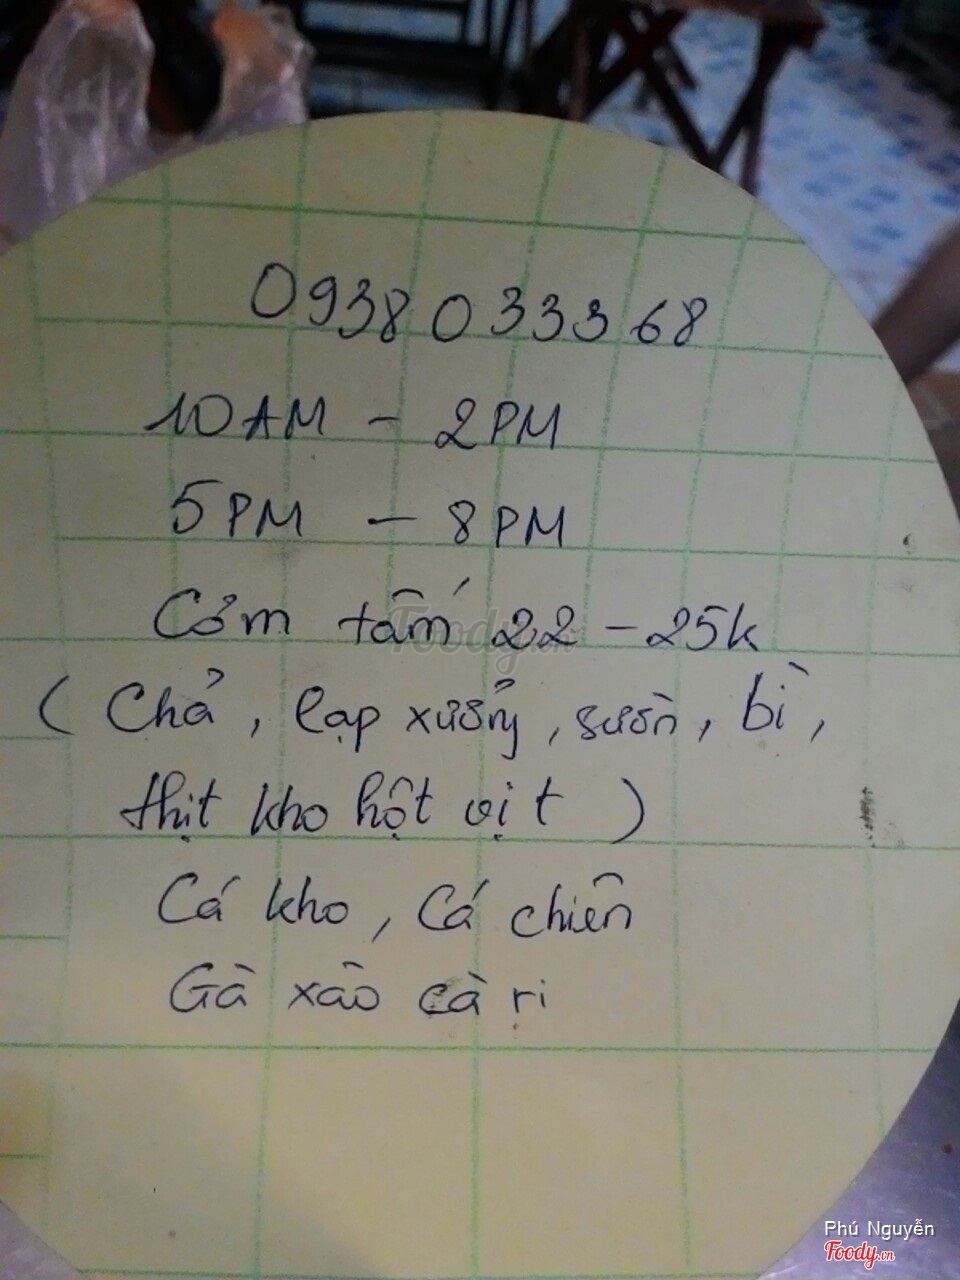 0938 033368
10AM - 2PM
5PM - 8PM
Cơm tấm 22 - 25k
( Chả, lạp xưởng, sườn, bì,
thịt kho hột vịt )
Cá kho, Cá chiên
Gà xào cà ri
Foody.vn
Phú Nguyễn
Foody.vn